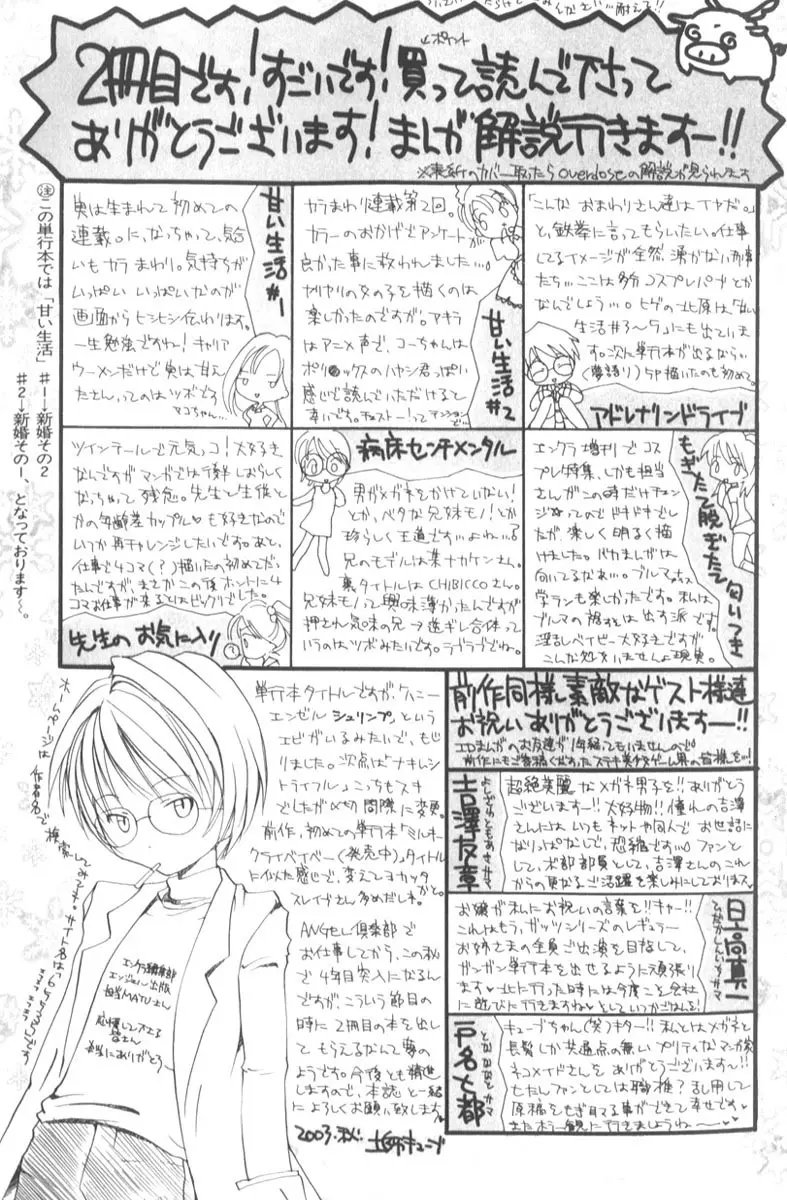 2冊目です!すごいです!買って読んで下さって
ありがとうございます!まんが解説行きますー!!
←ポイント
※表紙のカバー取ったらoverdoseの解説が見られます
㊟この単行本では「甘い生活」
#1→新婚その2
#2→新婚その1、となっております〜。
甘い生活#1
実は生まれて初めての
連載。に、なっちゃって、気合
いもカラまわり。気持ちが
いっぱい いっぱいなのが
画面からヒシヒシ伝わります。
一生勉強ですね!キャリア
ウーメンだけで実は甘えん
たさんってのはツボです
マコちゃん…
甘い生活#2
カラまわり連載第2回。
カラーのおかげでアンケートが
良かった事に救われました…。
ヤリヤリの女の子を描くのは
楽しかったのですが。アキラ
はアニメ声で、コーちゃんは
感じで読んでいただけると
幸いです。
アドレナリンドライブ
「こんな おまわりさん達はイヤだ。」
と、鉄拳に言ってもらいたい。仕事
してるイメージが全然、湧かない刑事
たち…ここは多分コスプレパブとか
なんでしょう…。ヒゲの北原は「甘い
生活#3〜5」にも出ていま
す。次ん単行本が出るなら…
(夢語り)SP描いたのも初めて。
先生のお気に入り
ツインテールで元気っコ!大好き
なんですがマンガではうまくしおらしく
なっちゃって残念。先生と生徒と
かの年齢差カップル♥も好きなので
いつか再チャレンジしたいです。あと、
仕事で4コマ(?)描いたの初めてだっ
たんですが、まさかこの後ホントに4
コマお仕事が来るとはビックリでした。
病床センチメンタル
男がメガネをかけていない!
とか、ベタな兄妹モノ!とか
珍らしく王道です…よね…?
兄のモデルは某ナカケンさん。
裏タイトルはCHIBICCOさん。
兄妹モノって興味薄かったんですが
押され気味の兄→逆ギレ合体って
いうのはツボみたいです。ラブラブでね。
もぎたて脱ぎたて匂いつき
エンクラ増刊でコス
プレ特集、しかも担当
さんがこの時だけチェン
ジ♥ってのでドキドキでし
たが、楽しく明るく描
けました。バカまんがは
向いてるなぁ…。ブルマも
学ランも楽しかったです。私は
ブルマの裾は出す派です。
淫乱ベイビー大好きですが
こんな処女いませんよ現実。
前作同様、素敵なゲスト様達
お祝いありがとうございますー!!
吉澤友章
よしざわともあきサマ
超絶美麗なメガネ男子を!!ありがとう
ございますー!!大好物!!憧れの吉澤
さんには、いつもネットや同人でお世話に
なりっぱなしで、恐縮です…。ファンと
して、本部部員として、吉澤さんのこれ
からの更なるご活躍を楽しみにしておりますス
日高真一
お嬢が私にお祝いの言葉を!!キャー!!
これはもう、ガッツシリーズのレギュラー
お姉さまの全員ご出演を目指して、
ガンガン単行本を出せるように頑張り
ます♥北に行った時には今度こそ会社
に遊びに行きますね♥
戸名七都
となななとサマ
キューブちゃん(笑)キター!!私とはメガネと
長髪しか共通点の無いプリティなマンガ家
ネコメイドさんをありがとうございますー!!
もたしファンとしては職権?乱用して
原稿をもぎ取る事ができて幸せです♥
またホラー観に行きましょうね〜♥
単行本タイトルですが、ケバニー
エンゼルシュリンプ、という
エビがいるみたいで、もじ
りました。次点は「ナキレシ
トライフル」こっちもスキ
でしたが〆切間際に変更。
前作、初めての単行本「ミルキー
クライベイベー(発売中)」タイトル
に似た感じで、変えてヨカッタ
かと。
スレイブさん多めだしネ。
ANGEL倶楽部で
お仕事してから、この秋
で4年目突入になるん
ですが、こういう節目の
時に2冊目の本を出し
てもらえるなんて夢の
ようです。今後とも精進
しますので、本誌と一緒
によろしくお願い致します。
2003.秋.
ホームページは作者名で検索してみて下さい。
エンクラ編集部
エンジェル出版
担当MATUさん
応援して下さる
皆さん
本当にありがとう